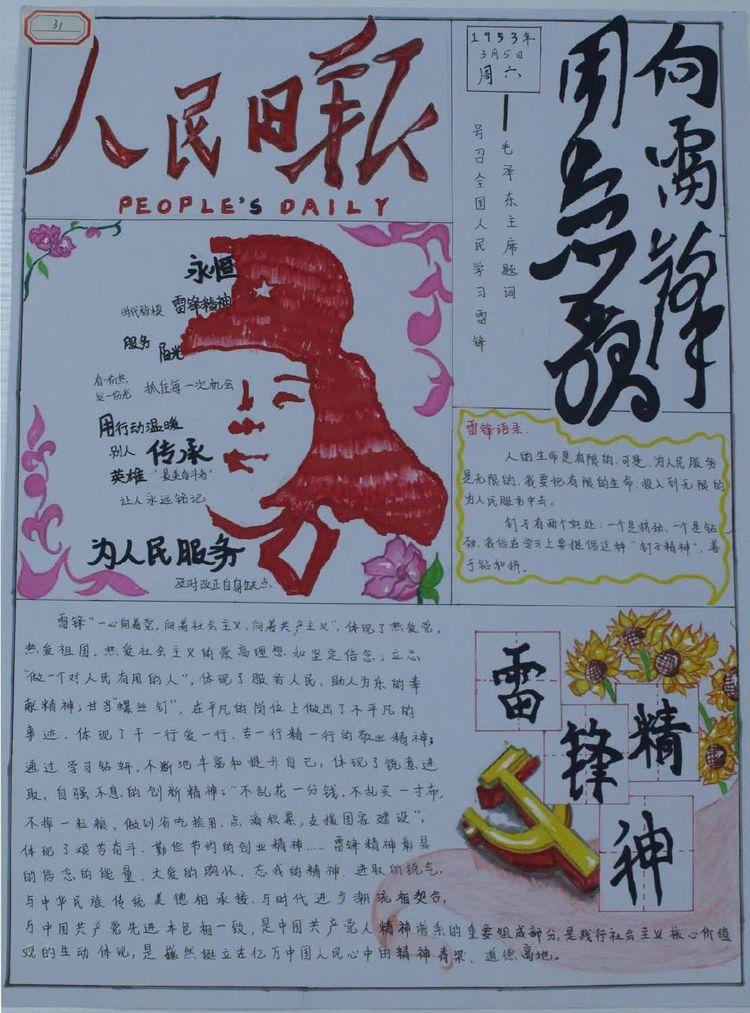 31
人民日报
PEOPLE'S DAILY
1953年
3月5日
周六
向雷锋
同志学习
毛泽东主席题词
号召全国人民学习雷锋
永恒
时代楷模 雷锋精神
服务 阳光
有一份热
发一份光 抓住每一次机会
用行动温暖
别人 传承
英雄 "最美奋斗者"
让人永远铭记
为人民服务
及时改正自身缺点
雷锋语录:
人的生命是有限的,可是,为人民服务
是无限的,我要把有限的生命,投入到无限的
为人民服务中去。
钉子有两个好处:一个是挤劲,一个是钻
劲,我们在学习上要提倡这种"钉子精神",善
于钻和挤。
雷锋"一心向着党,向着社会主义,向着共产主义",体现了热爱党,
热爱祖国、热爱社会主义的崇高理想和坚定信念;立志
"做一个对人民有用的人",体现了服务人民、助人为乐的奉
献精神;甘当"螺丝钉",在平凡的岗位上做出了不平凡的
事迹,体现了干一行爱一行、专一行精一行的敬业精神;
通过学习钻研,不断地丰富和提升自己,体现了锐意进
取、自强不息的创新精神;"不乱花一分钱,不乱买一寸布,
不掉一粒粮,做到省吃俭用,点滴积累,支援国家建设",
体现了艰苦奋斗、勤俭节约的创业精神……雷锋精神彰显
的信念的能量、大爱的胸怀、忘我的精神、进取的锐气,
与中华民族传统美德相承接,与时代进步潮流相契合,
与中国共产党先进本色相一致,是中国共产党人精神谱系的重要组成部分,是践行社会主义核心价值
观的生动体现,是巍然挺立在亿万中国人民心中的精神脊梁、道德高地。
雷
锋 精
神